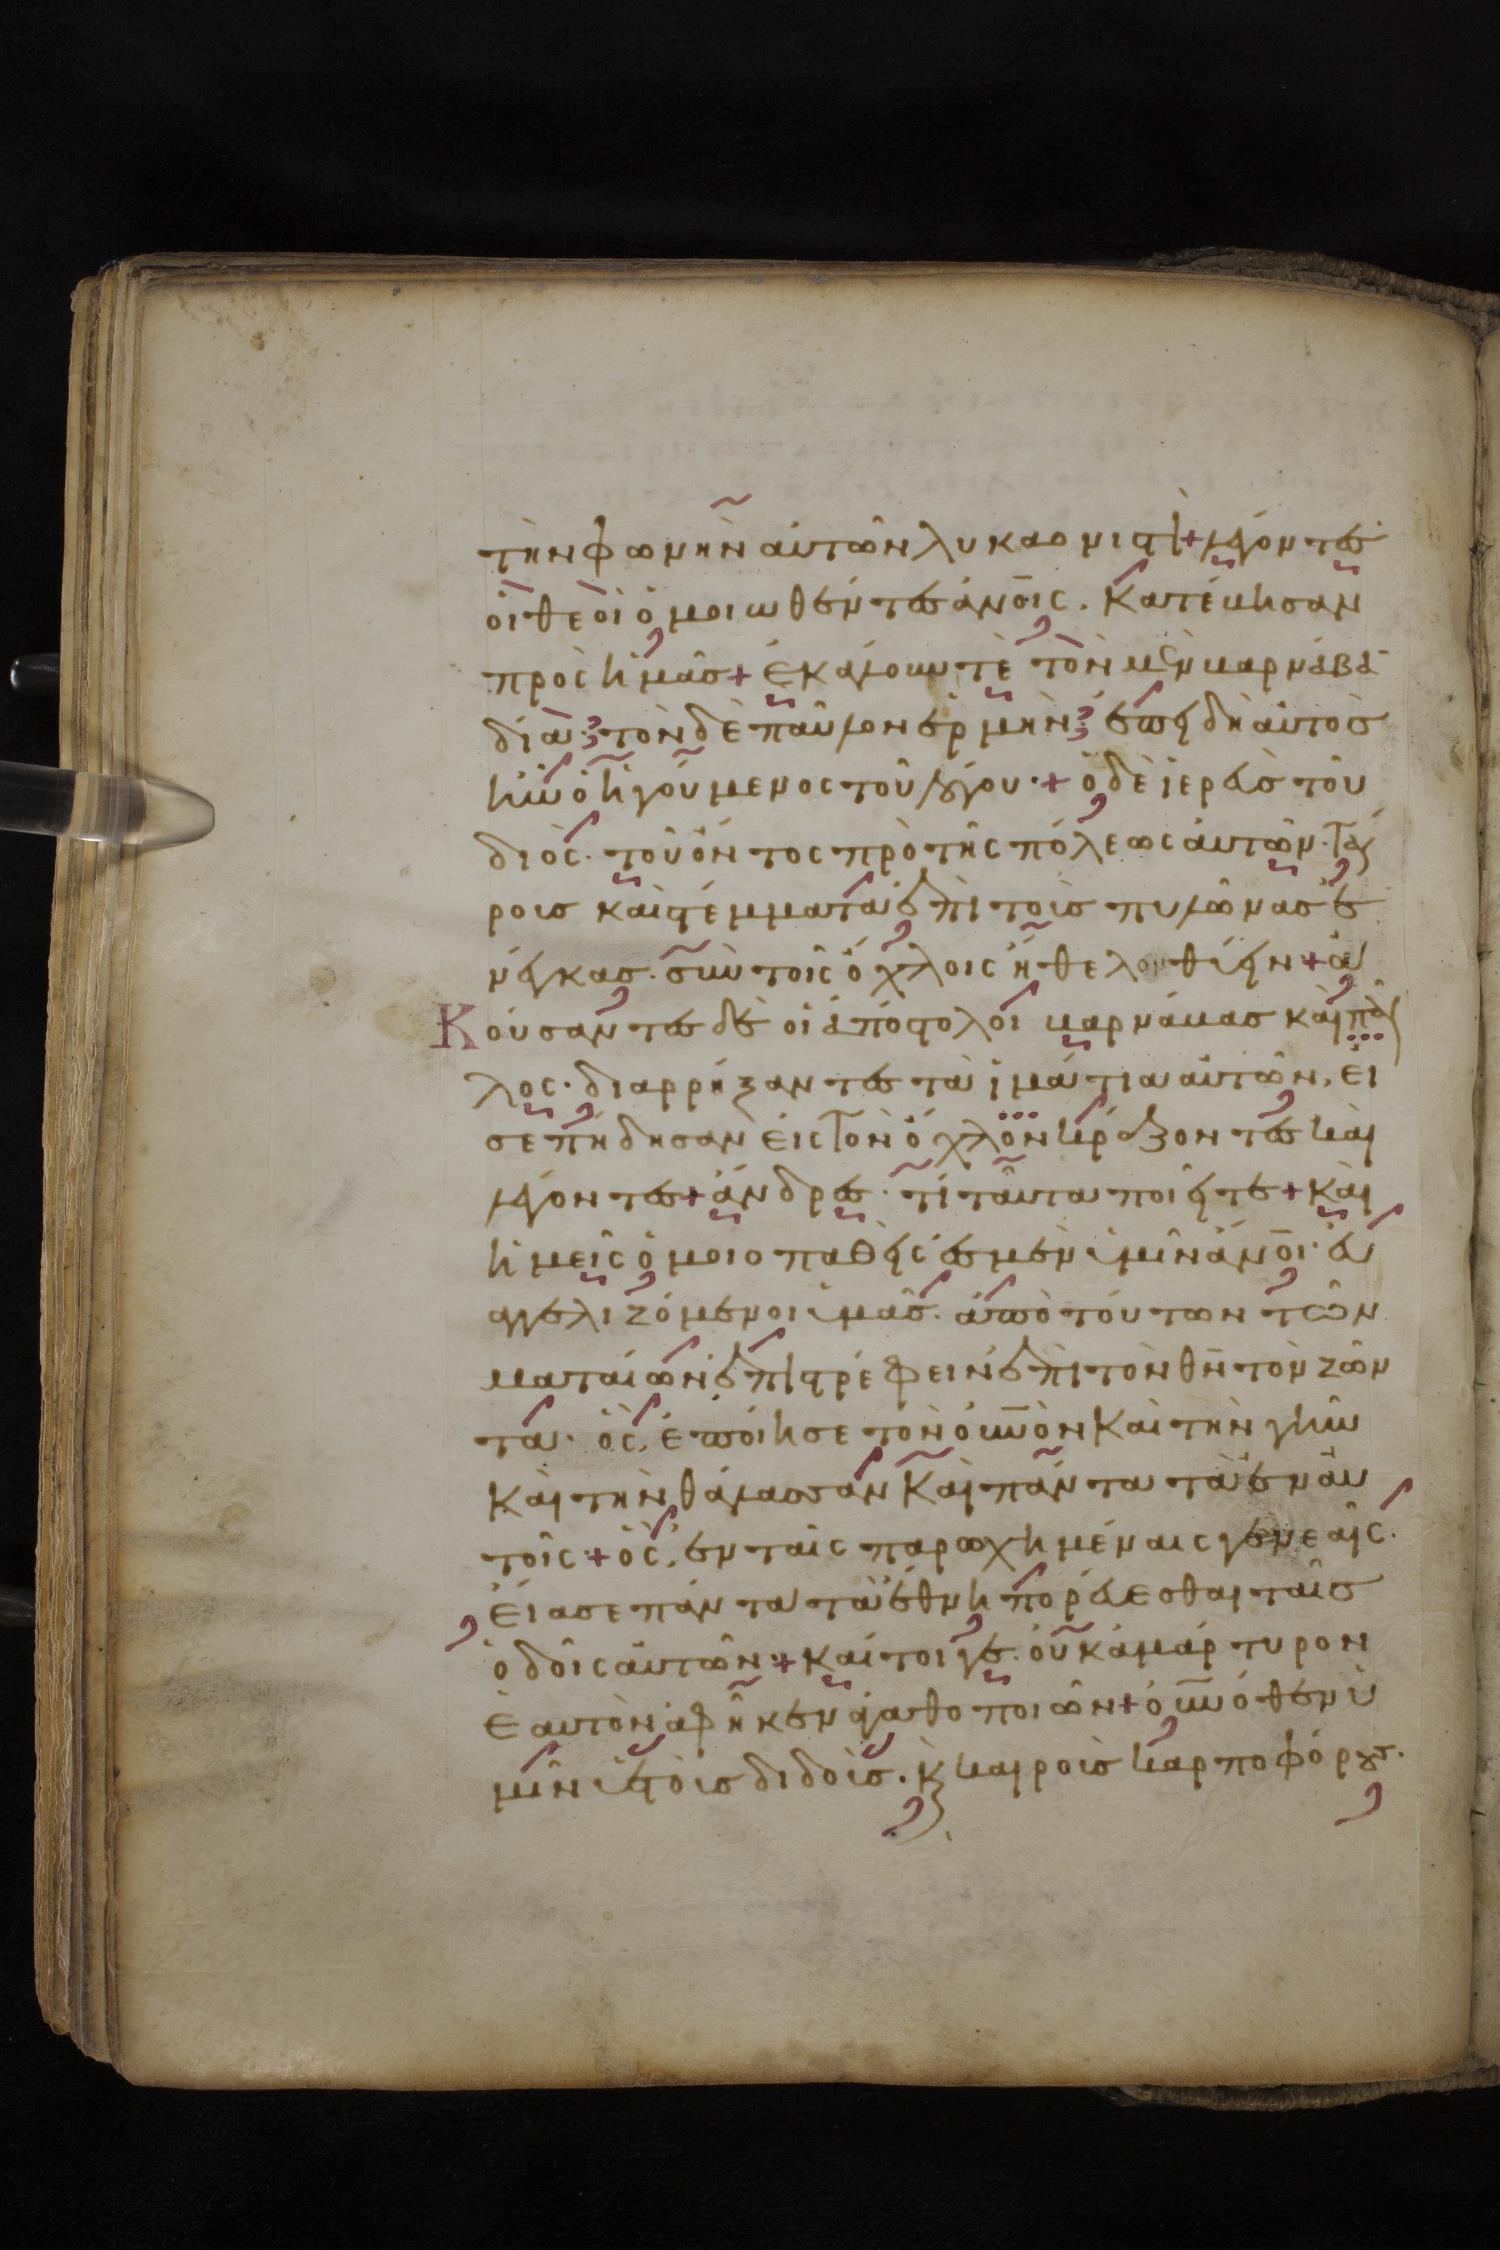 τὴν φωνὴν αὐτῶν λυκαονιστὶ + λέγοντες·
οἱ θεοὶ ὁμοιωθέντες ἀνοις. κατέβησαν
πρὸς ἡμᾶς + ἐκάλουν τὲ τὸν μὲν βαρνάβα
δία· τὸν δὲ παῦλον ἑρμὴν· ἐπειδὴ αὐτὸς
ἦν ὁ ἡγούμενος τοῦ λόγου· + ὁ δὲ ἱερεὺς τοῦ
διὸς· τοῦ ὄντος πρὸ τῆς πόλεως αὐτῶν· ταύ
ροις καὶ στέμματα ἐπὶ τοὶς πυλῶνας ἐ
νέγκας· σὺν τοῖς ὄχλοις ἤθελον θύειν + ἀ
Κούσαντες δὲ οἱ ἀπόστολοι βαρνάβας καὶ παῦ
λος· διαρρήξαντες τὰ ἱμάτια αὐτῶν, εἰ
σεπήδησαν εἰς τὸν ὄχλον κράζοντες καὶ
λέγοντες + ἄνδρες· τί ταῦτα ποιεῖτε + καὶ
ἡμεῖς ὁμοιοπαθεῖς ἐσμὲν ὑμῖν ἀνοι· εὐ
αγγελιζόμενοι ὑμᾶς· ἀπὸ τούτων τῶν
ματαίων ἐπιστρέφειν ἐπὶ τὸν θν τὸν ζῶν
τα· ὃς, ἐποίησε τὸν οὐνὸν καὶ τὴν γῆν
καὶ τὴν θάλασσαν καὶ πάντα τὰ ἐν αὐ
τοῖς· + ὃς, ἐν ταῖς παρωχημέναις γενεαῖς·
εἴασε πάντα τὰ ἔθνη πορεύεσθαι ταῖς
ὁδοῖς αὐτῶν· + καίτοιγε· οὐκ ἀμάρτυρον
ἑαυτὸν ἀφῆκεν ἀγαθοποιῶν + οὐνόθεν ὑ
μῖν ὑετοὺς διδοὺς. κ καιροὺς καρποφόρους.